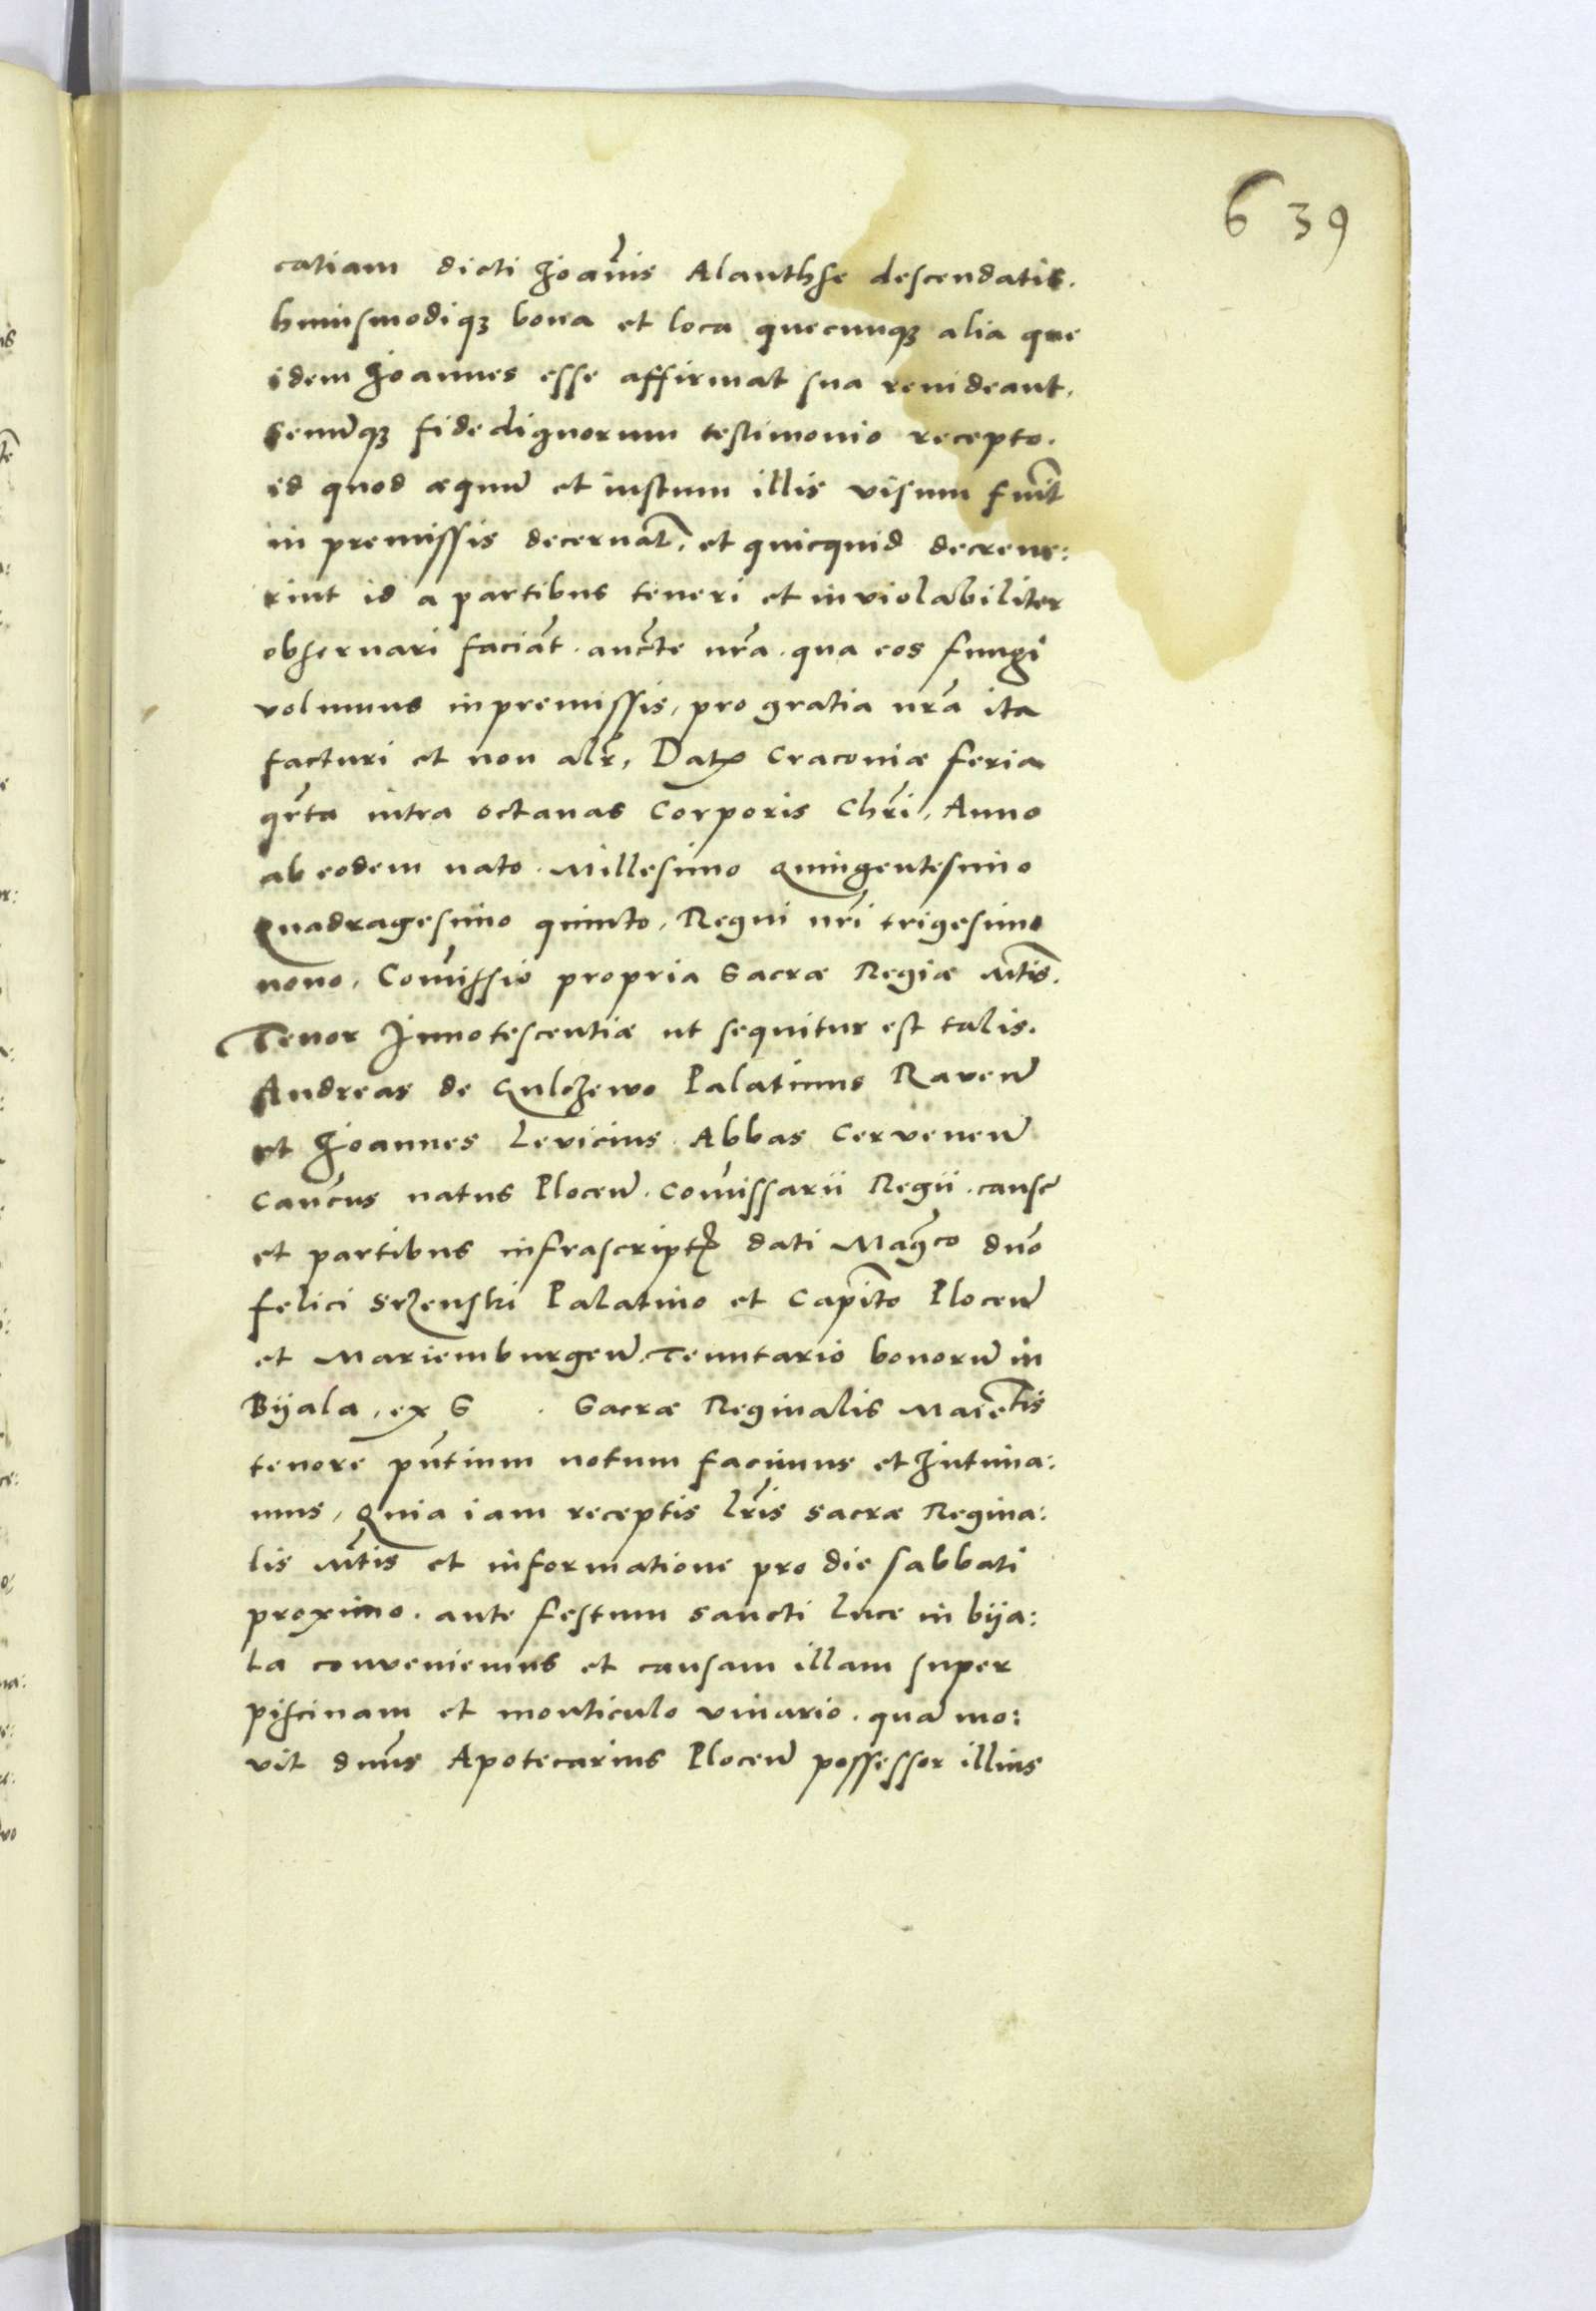 639
catiam dicti Joan̄is Alanthse descendatis.
huiusmodiqꝫ bona et loca quecunqꝫ alia que
idem Joannes esse affirmat sua revideant,
senūqꝫ fide dignorum testimonio recepto.
id quod æquū et iustum illis visum fuīt
in premissis decernāt, et quicquid decreve:
rint id a partibus teneri et inviolabiliter
observari faciāt. auc̄te nr̄a. qua eos fungi
volumus in premissis, pro gratia nr̄a ita
facturi et non alr̄, Datꝭ Cracoviæ feria
qr̄ta intra octavas Corporis Chr̄i, Anno
ab eodem nato. Millesimo Quingentesimo
Quadragesimo quinto, Regni nr̄i trigesimo
nono, Com̄issio propria Sacræ Regiæ Mt̄is.
Tenor Innotescentiæ ut sequitur est talis.
Andreas de Gulczewo Palatinus Raveñ
et Joannes Levicius Abbas Cerveneñ
Canc̄us natus Ploceñ. Com̄issarii Regii. cause
et partibus infrascriptꝭ dati Mag̃co dno̅
Felici Srzenski Palatino et Capīto Ploceñ
et Mariemburgeñ. Tenutario bonorū in
Bijala, ex S . Sacræ Reginalis Maiet̄is
tenore pn̄tium notum facimus et Intima:
mus, Quia iam receptis lr̄is sacræ Regina:
lis Mt̄is et informatione pro die sabbati
proximo. ante festum sancti Luce in bija:
la conveniemus et causam illam super
piscinam et monticulo vinario. quā mo:
vit dn̄us Apotecarius Ploceñ possessor illius